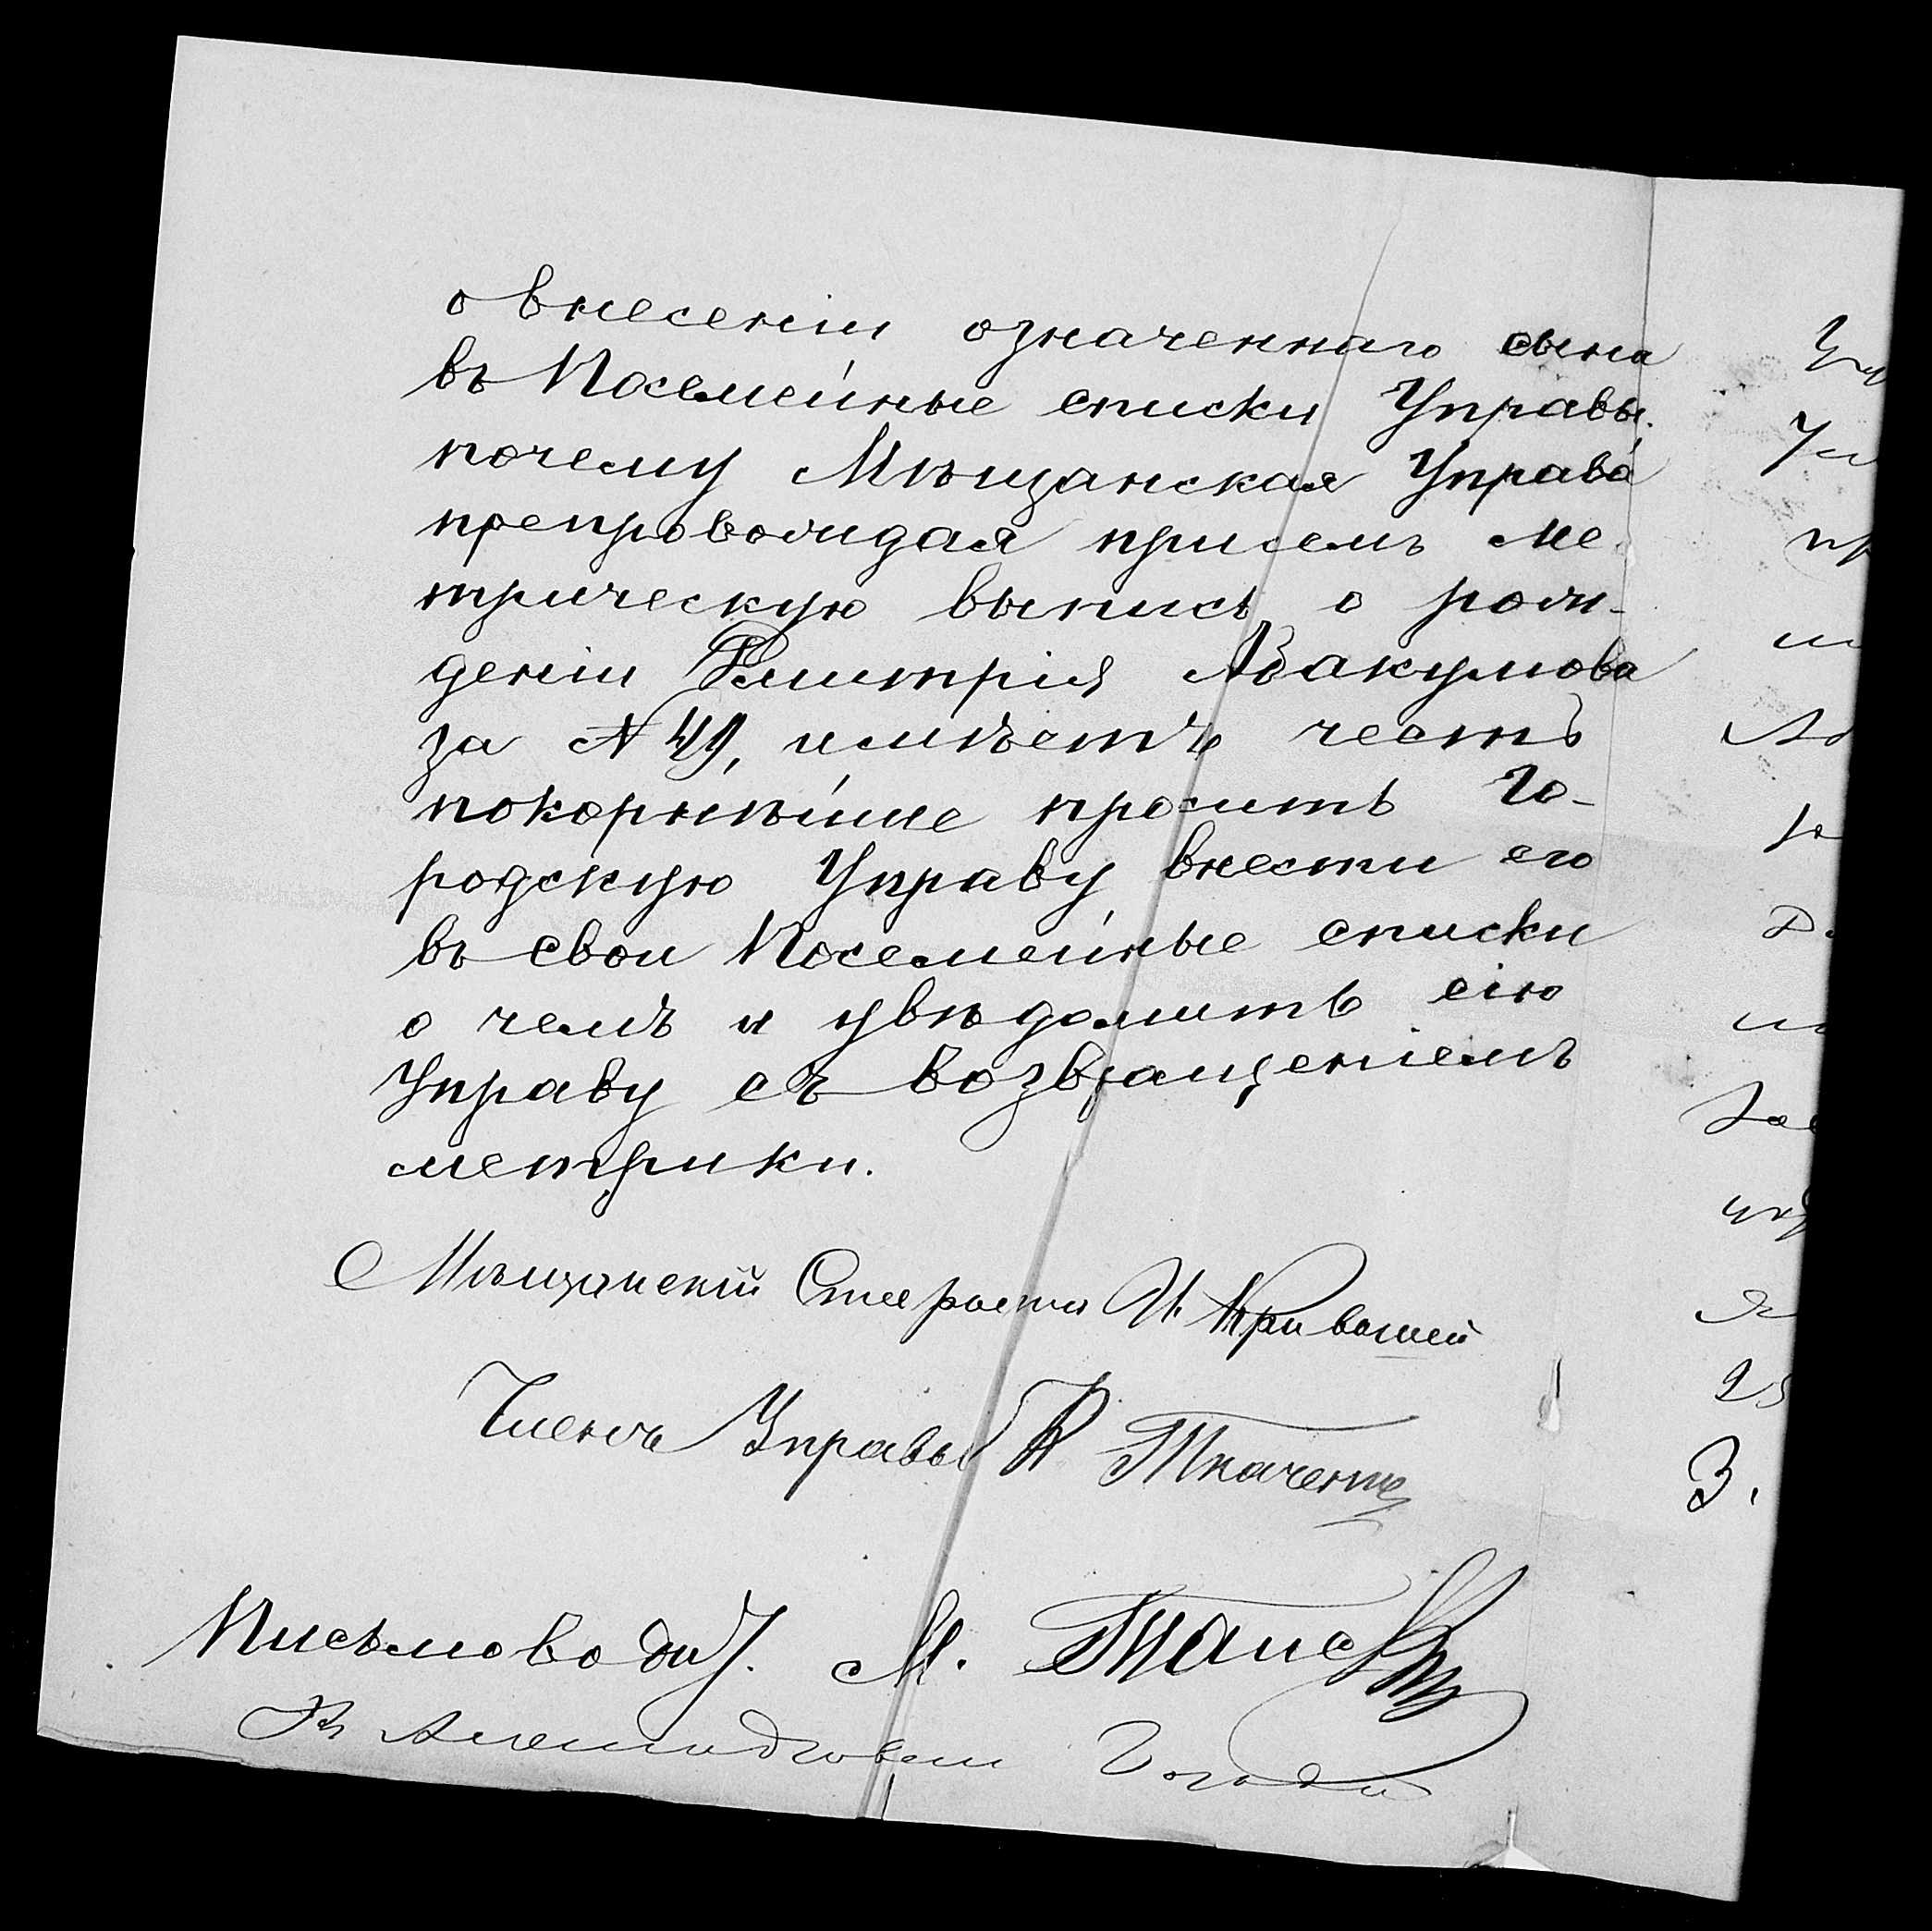 о внесеніи означеннаго сына
въ Посемейные списки Управы,
почему Мѣщанская Управа
препровождая присемъ ме-
трическую выпись о рож-
деніи Дмитрія Авакумова
за № 49, имѣетъ честь
покорнѣйше просить Го-
родскую Управу внести его
въ свои Посемейные списки
о чемъ и увѣдомить сію
Управу съ возвращеніемъ
метрики.
Мѣщанскій Староста И. Кривошей
Членъ Управы К Ткаченко
Письмовод. М.